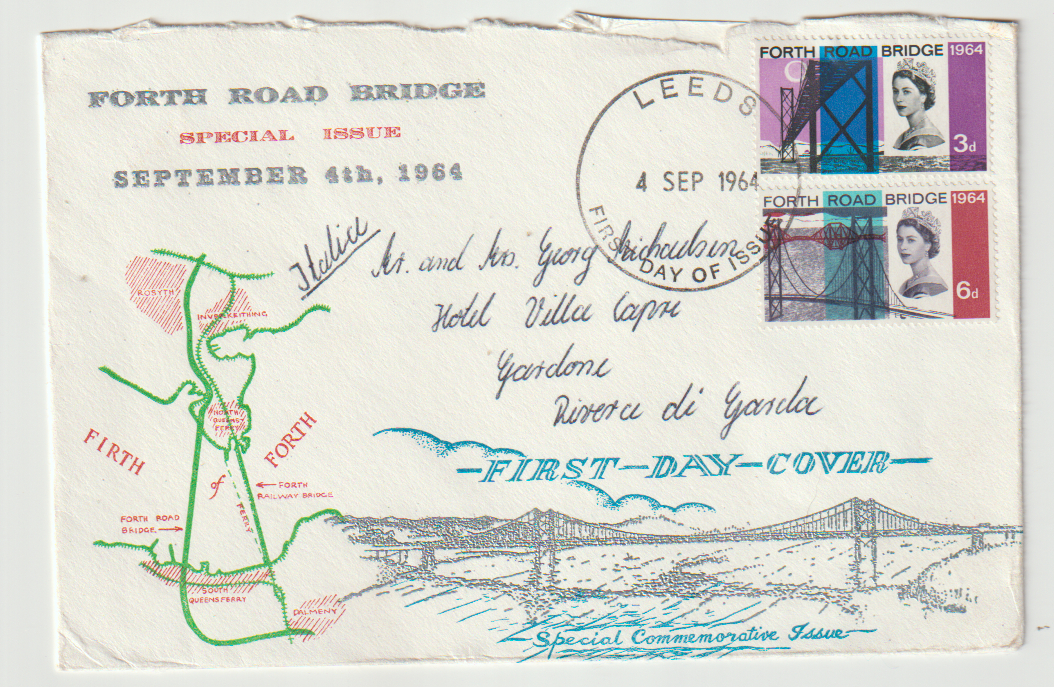 FORTH ROAD BRIDGE
SPECIAL ISSUE
SEPTEMBER 4th, 1964
LEEDS
4 SEP 1964
FIRST DAY OF ISSUE
FORTH ROAD BRIDGE 1964
3d
FORTH ROAD BRIDGE 1964
6d
Italia
Mr. and Mrs. Georg Michaelsen
Hotel Villa Capri
Gardone
Rivera di Garda
ROSYTH
INVERKEITHING
NORTH
QUEENS
FERRY
FIRTH
of
FORTH
FORTH
RAILWAY BRIDGE
FERRY
FORTH ROAD
BRIDGE
SOUTH
QUEENSFERRY
DALMENY
FIRST-DAY-COVER
Special Commemorative Issue